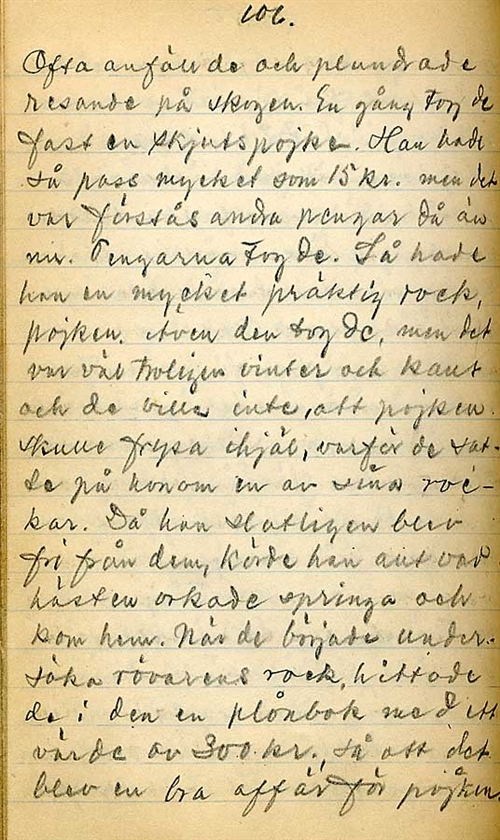 106.
Ofta anföll de och plundrade
resande på skogen. En gång tog de
fast en skjutspojke. Han hade
så pass mycket som 15 kr. men det
var förstås andra pengar då än
nu. Pengarna tog de. Så hade
han en mycket präktig rock,
pojken. Även den tog de, men det
var väl troligen vinter och kallt
och de ville inte, att pojken
skulle frysa ihjäl, varför de sat-
te på honom en av sina roc-
kar. Då han slutligen blev
fri från dem, körde han allt vad
hästen orkade springa och
kom hem. När de började under-
söka rövarens rock, hittade
de i den en plånbok med ett
värde av 300 kr., så att det
blev en bra affär för pojken.